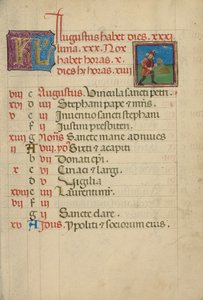 KL Augustus habet dies. xxxi
luna. xxx. Nox
habet horas. x.
dies v̄ horas. xiiii
viii c Augustus. Vincula sancti petri.
xvi d Stephani pape ⁊ mr̄is.
v e Inuentio sancti stephani
f Iustini presbiteri
xiii g Nonis Sancte marie ad niues
ii A viii. vo Sixti ⁊ agapiti
b Donati ep̄i.
x c Ciriaci ⁊ largi.
d Vigilia
xviii e Laurentii mr̄.
vii f
g Sancte clare.
xv A Idus. Ypoliti ⁊ sociorum eius.